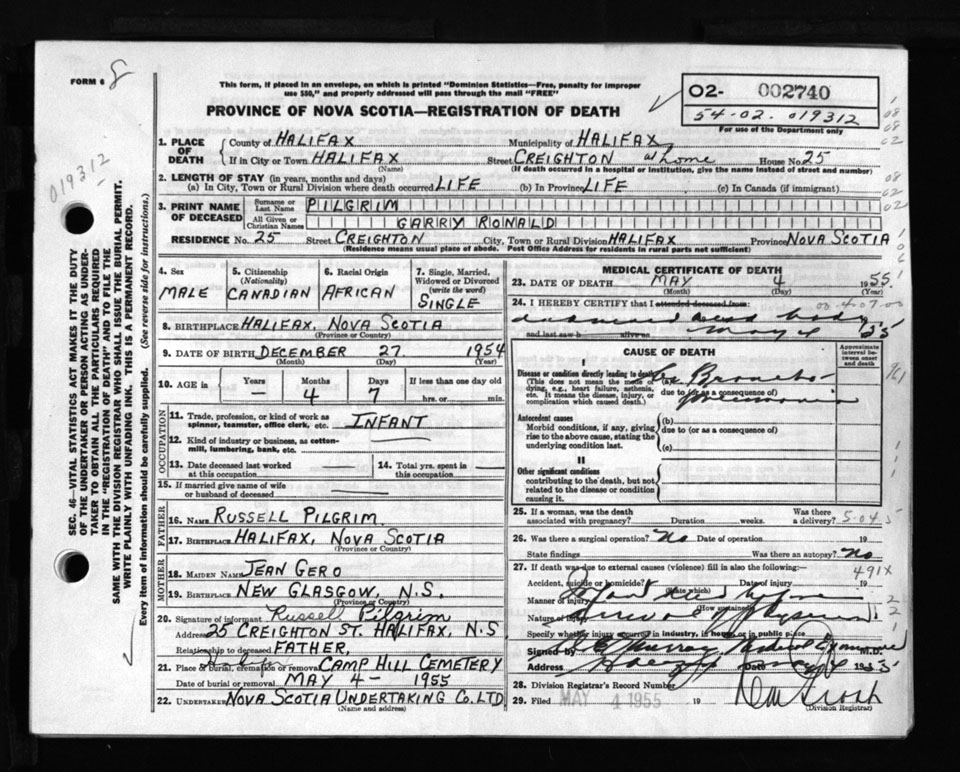 FORM 6 8
This form, if placed in an envelope, on which is printed "Dominion Statistics—Free, penalty for improper
use $50," and properly addressed will pass through the mail "FREE"
PROVINCE OF NOVA SCOTIA—REGISTRATION OF DEATH
02- 002740
54-02. 019312
For use of the Department only
019312
SEC. 46—VITAL STATISTICS ACT MAKES IT THE DUTY
OF THE UNDERTAKER OR PERSON ACTING AS UNDER-
TAKER TO OBTAIN ALL THE PARTICULARS REQUIRED
IN THE "REGISTRATION OF DEATH" AND TO FILE THE
SAME WITH THE DIVISION REGISTRAR WHO SHALL ISSUE THE BURIAL PERMIT.
WRITE PLAINLY WITH UNFADING INK. THIS IS A PERMANENT RECORD.
Every item of information should be carefully supplied. (See reverse side for instructions.)
1. PLACE OF DEATH
County of HALIFAX Municipality of HALIFAX
If in City or Town HALIFAX Street CREIGHTON at home House No. 25
(Name) (If death occurred in a hospital or institution, give the name instead of street and number)
2. LENGTH OF STAY (in years, months and days)
(a) In City, Town or Rural Division where death occurred LIFE (b) In Province LIFE (c) In Canada (if immigrant)
3. PRINT NAME OF DECEASED
Surname or Last Name PILGRIM
All Given or Christian Names GARRY RONALD
RESIDENCE No. 25 Street CREIGHTON City, Town or Rural Division HALIFAX Province NOVA SCOTIA
(Residence means usual place of abode. Post Office Address for residents in rural parts not sufficient)
4. Sex MALE
5. Citizenship (Nationality) CANADIAN
6. Racial Origin AFRICAN
7. Single, Married, Widowed or Divorced (write the word) SINGLE
8. BIRTHPLACE HALIFAX, NOVA SCOTIA
(Province or Country)
9. DATE OF BIRTH DECEMBER 27 1954
(Month) (Day) (Year)
10. AGE in Years — Months 4 Days 7 If less than one day old
hrs. or min.
OCCUPATION
11. Trade, profession, or kind of work as
spinner, teamster, office clerk, etc. INFANT
12. Kind of industry or business, as cotton-
mill, lumbering, bank, etc.
13. Date deceased last worked
at this occupation
14. Total yrs. spent in
this occupation
15. If married give name of wife
or husband of deceased
FATHER
16. NAME RUSSELL PILGRIM
17. BIRTHPLACE HALIFAX, NOVA SCOTIA
(Province or Country)
MOTHER
18. MAIDEN NAME JEAN GERO
19. BIRTHPLACE NEW GLASGOW, N.S.
(Province or Country)
20. Signature of informant Russell Pilgrim
Address 25 CREIGHTON ST. HALIFAX, N.S
Relationship to deceased FATHER,
21. Place of burial, cremation or removal CAMP HILL CEMETERY
Date of burial or removal MAY 4 - 1955
22. UNDERTAKER NOVA SCOTIA UNDERTAKING CO. LTD
(Name and address)
MEDICAL CERTIFICATE OF DEATH
23. DATE OF DEATH MAY 4 1955
(Month) (Day)
24. I HEREBY CERTIFY that I attended deceased from:
dead body
and last saw h alive on May 4 55
CAUSE OF DEATH
Approximate interval between onset and death
I
Disease or condition directly leading to death
(This does not mean the mode of
dying, e.g., heart failure, asthenia,
etc. It means the disease, injury, or
complication which caused death.)
Broncho-
due to (or as a consequence of)
pneumonia
Antecedent causes
Morbid conditions, if any, giving
rise to the above cause, stating the
underlying condition last.
(b)
due to (or as a consequence of)
(c)
II
Other significant conditions
contributing to the death, but not
related to the disease or condition
causing it.
25. If a woman, was the death
associated with pregnancy? Duration weeks. Was there
a delivery? 5-04 5
26. Was there a surgical operation? No Date of operation 19
State findings Was there an autopsy? No
27. If death was due to external causes (violence) fill in also the following:- 491X
Accident, suicide or homicide? Date of injury 19
(State which)
Manner of injury
(How sustained)
Nature of injury
Specify whether injury occurred in industry, in home or in public place
Signed by Murray Medical Examiner M.D.
Address Date May 4 1955
28. Division Registrar's Record Number
29. Filed MAY 4 1955 19
(Division Registrar)